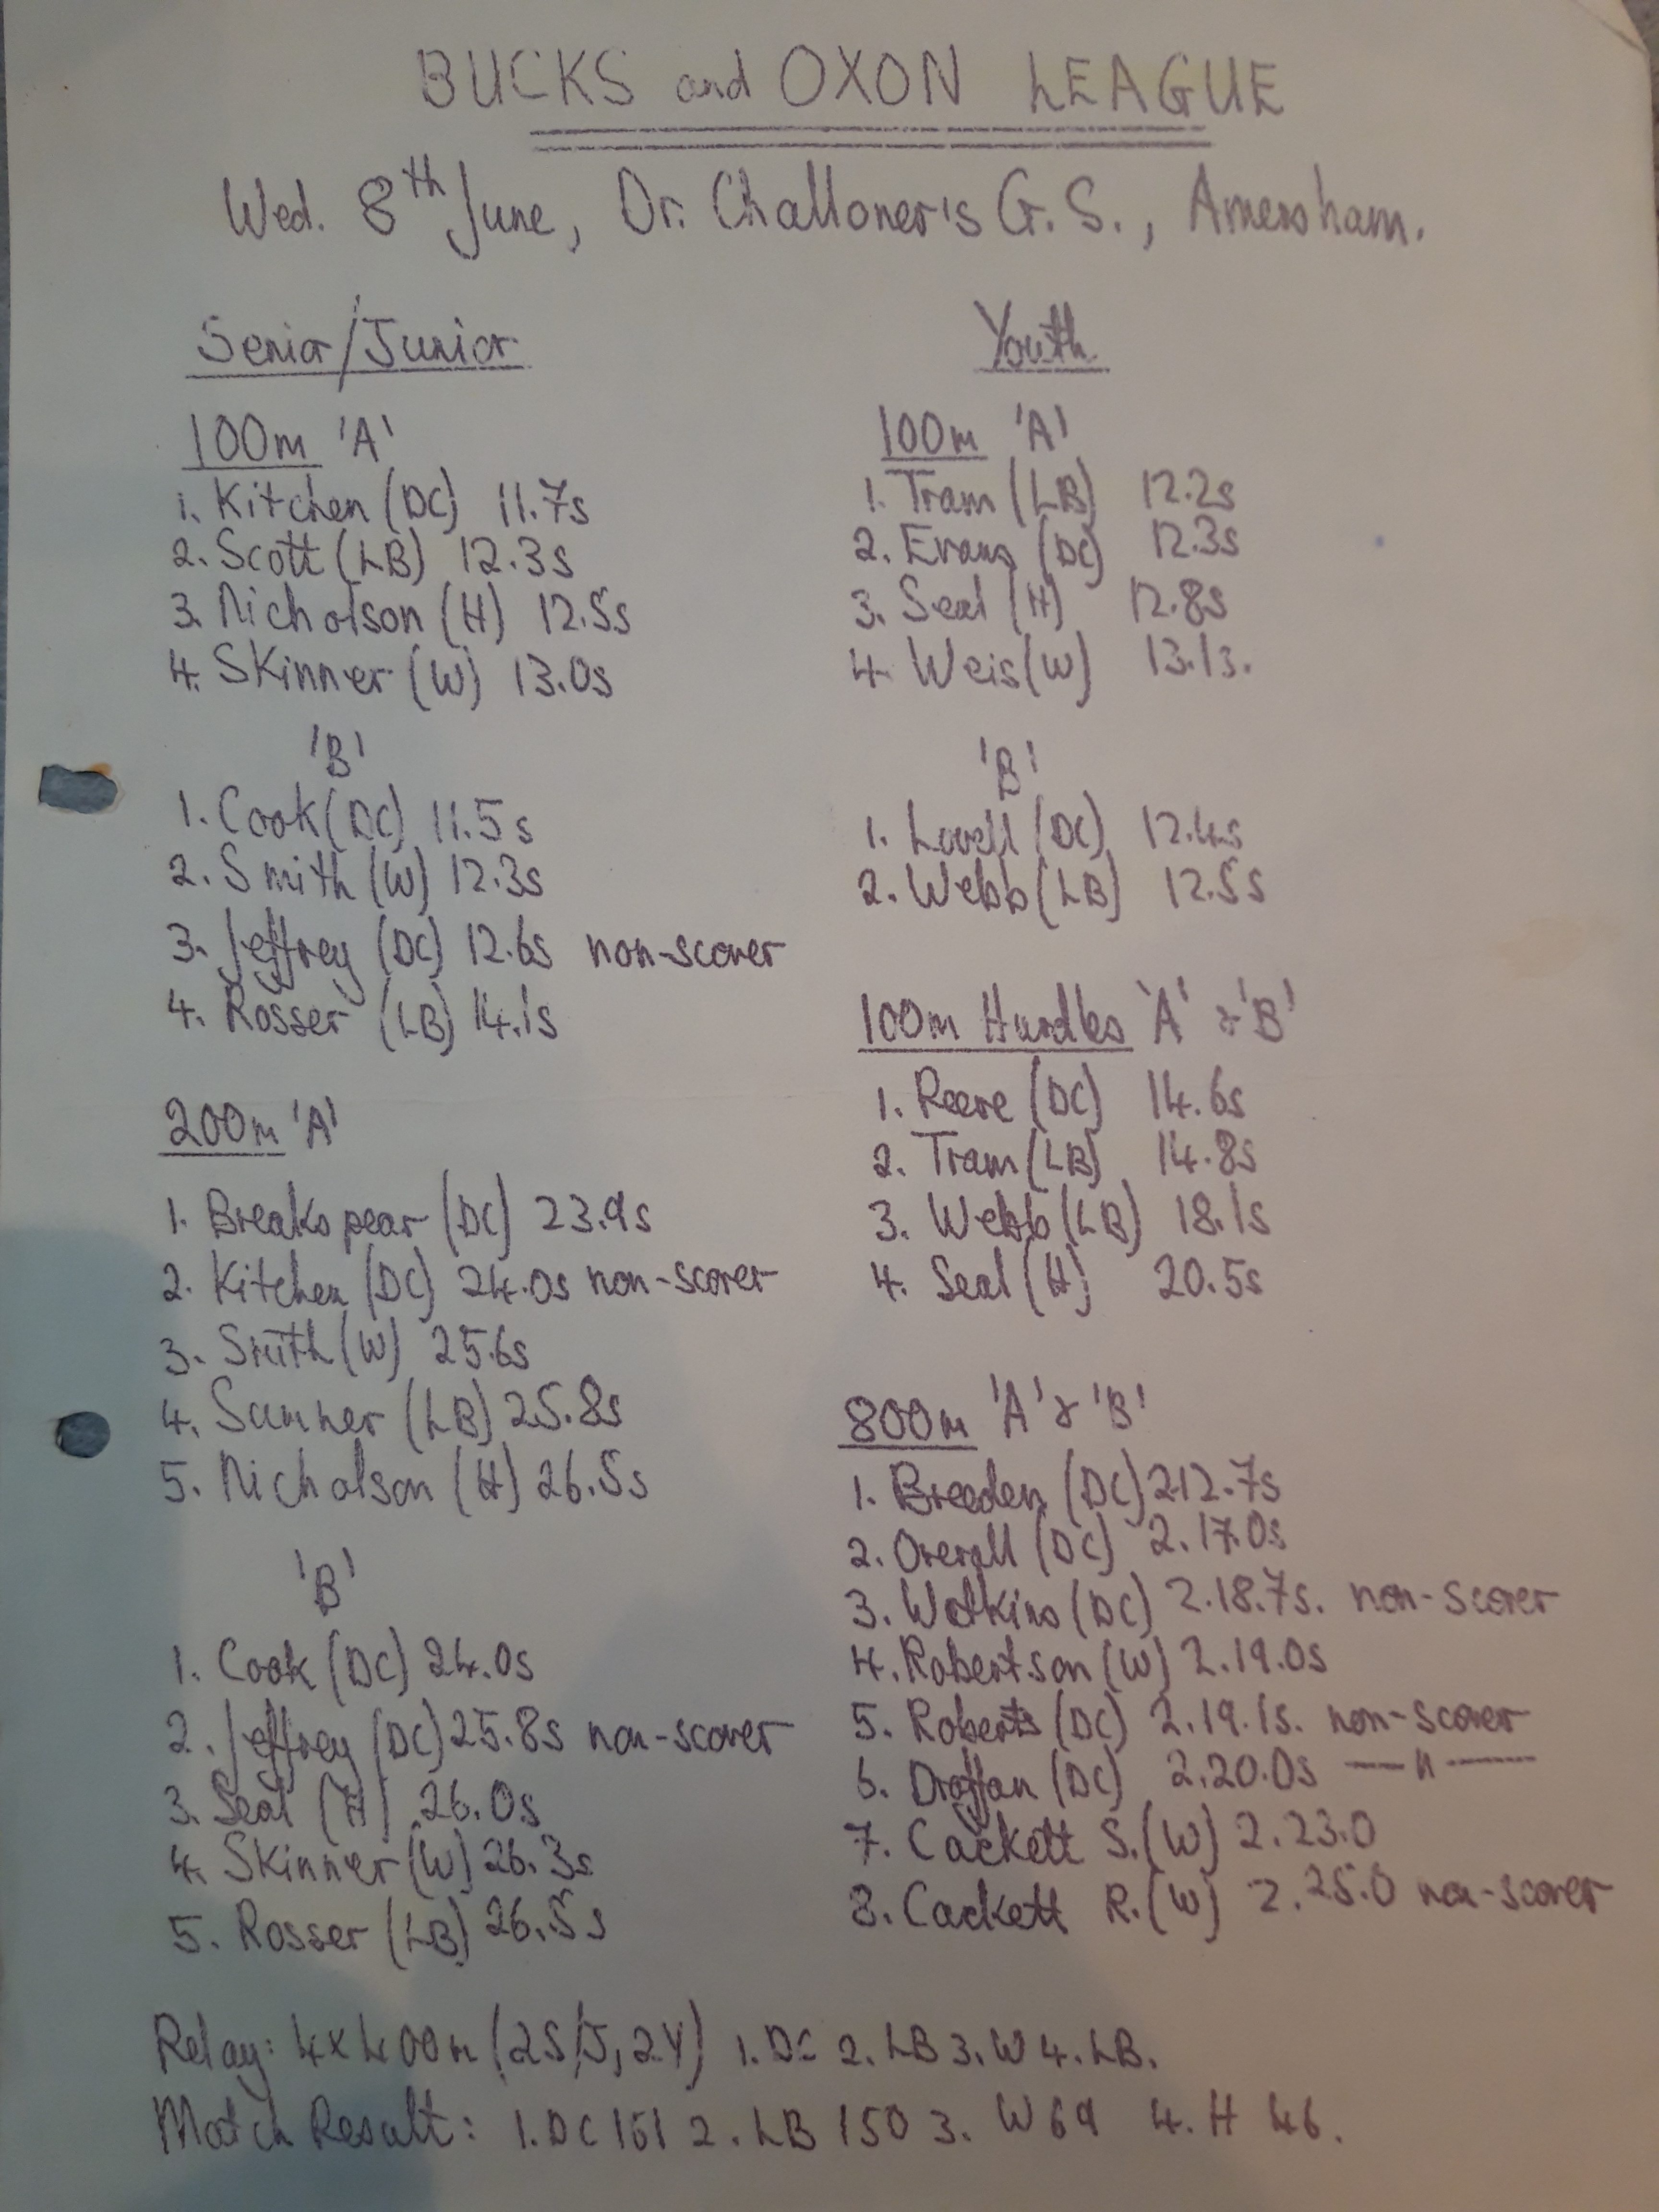 BUCKS and OXON LEAGUE
Wed. 8th June, Dr. Challoner's G.S., Amersham.
Senior/Junior
100m 'A'
1. Kitchen (DC) 11.7s
2. Scott (LB) 12.3s
3. Nicholson (H) 12.5s
4. Skinner (W) 13.0s
'B'
1. Cook (DC) 11.5s
2. Smith (W) 12.3s
3. Jeffrey (DC) 12.6s non-scorer
4. Rosser (LB) 14.1s
200m 'A'
1. Breakspear (DC) 23.9s
2. Kitchen (DC) 24.0s non-scorer
3. Smith (W) 25.6s
4. Sumner (LB) 25.8s
5. Nicholson (H) 26.5s
'B'
1. Cook (DC) 24.0s
2. Jeffrey (DC) 25.8s non-scorer
3. Seal (H) 26.0s
4. Skinner (W) 26.3s
5. Rosser (LB) 26.5s
Youth
100m 'A'
1. Tram (LB) 12.2s
2. Evans (DC) 12.3s
3. Seal (H) 12.8s
4. Weis (W) 13.1s.
'B'
1. Lovell (DC) 12.4s
2. Webb (LB) 12.5s
100m Hurdles 'A' & 'B'
1. Reeve (DC) 14.6s
2. Tram (LB) 14.8s
3. Webb (LB) 18.1s
4. Seal (H) 20.5s
800m 'A' & 'B'
1. Breeden (DC) 2.12.7s
2. Overall (DC) 2.17.0s
3. Watkins (DC) 2.18.7s. non-scorer
4. Robertson (W) 2.19.0s
5. Roberts (DC) 2.19.1s. non-scorer
6. Draffan (DC) 2.20.0s — " —
7. Cackett S. (W) 2.23.0
8. Cackett R. (W) 2.25.0 non-scorer
Relay: 4x400m (2S/J, 2Y) 1. DC 2. LB 3. W 4. LB.
Match Result: 1. DC 161 2. LB 150 3. W 69 4. H 46.